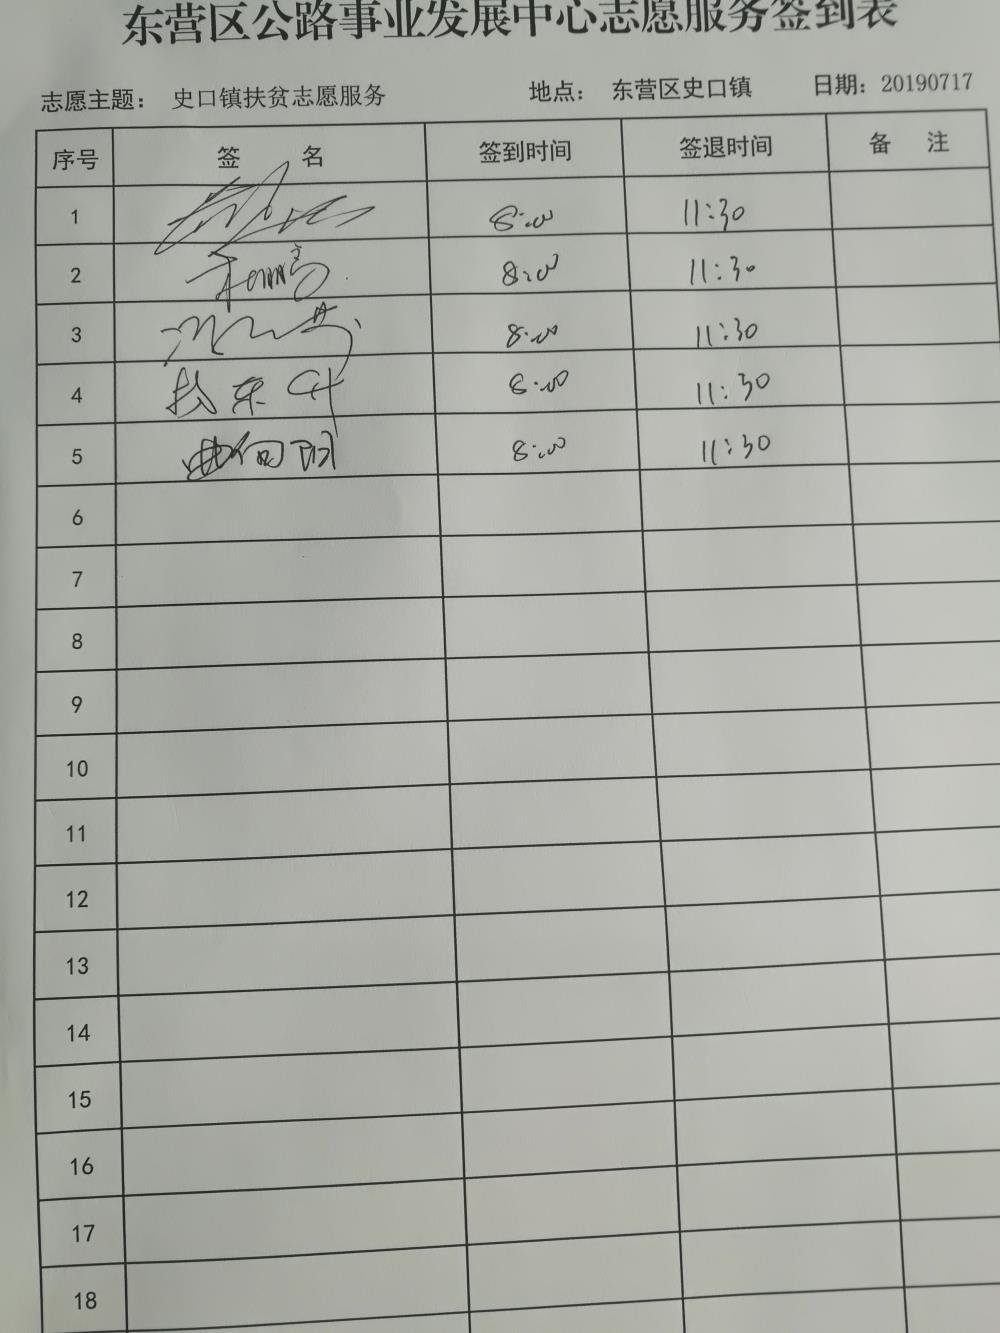 东营区公路事业发展中心志愿服务签到表
志愿主题： 史口镇扶贫志愿服务 地点： 东营区史口镇 日期：20190717
序号 签 名 签到时间 签退时间 备 注
1 8:00 11:30
2 8:00 11:30
3 8:00 11:30
4 8:00 11:30
5 8:00 11:30
6
7
8
9
10
11
12
13
14
15
16
17
18